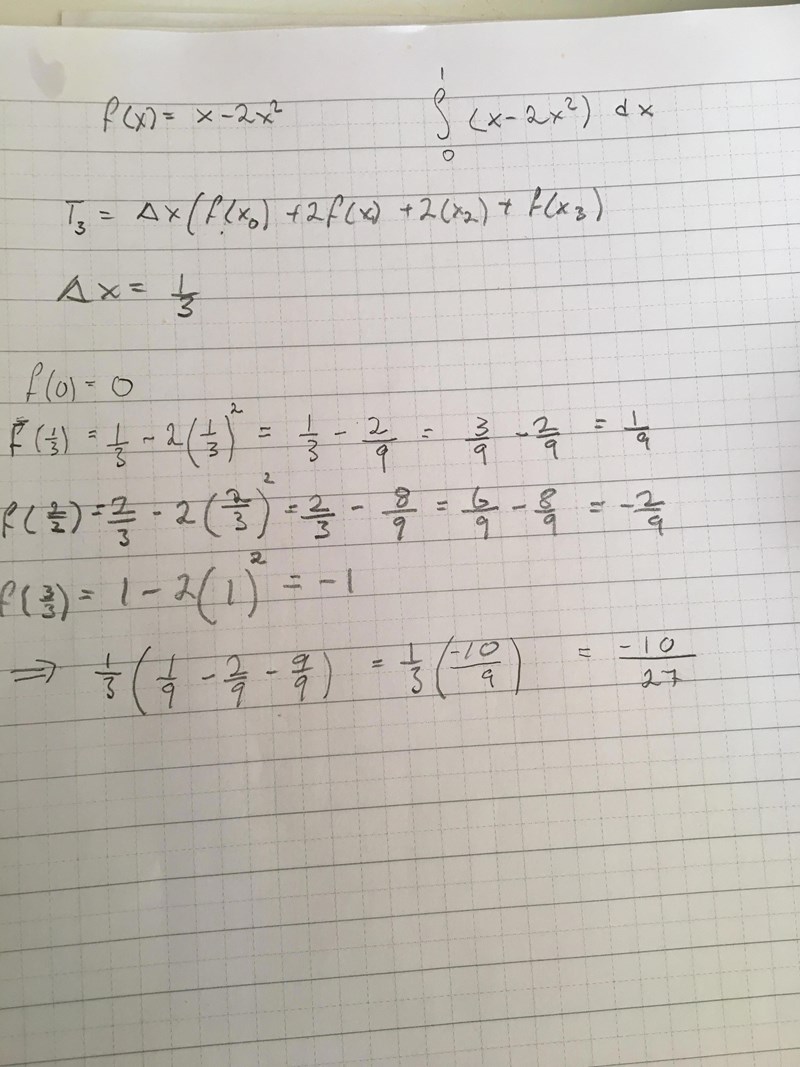 f(x) = x - 2x² ∫₀¹ (x - 2x²) dx
T₃ = Δx(f(x₀) + 2f(x₁) + 2(x₂) + f(x₃)
Δx = 1/3
f(0) = 0
f(1/3) = 1/3 - 2(1/3)² = 1/3 - 2/9 = 3/9 - 2/9 = 1/9
f(2/2) = 2/3 - 2(2/3)² = 2/3 - 8/9 = 6/9 - 8/9 = -2/9
f(3/3) = 1 - 2(1)² = -1
⇒ 1/3(1/9 - 2/9 - 9/9) = 1/3(-10/9) = -10/27